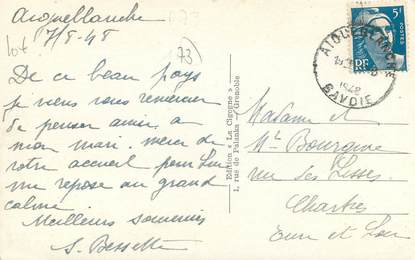 Aigueblanche
7/8-48
lot
73)
De ce beau pays
je viens vous remercier
de penser ainsi à
mon mari. merci de
votre accueil pour Lui
me repose au grand
calme.
Meilleurs souvenirs
S. Bessette
Edition « La Cigogne »
1, rue de Palanka - Grenoble
AIGUEBLANCHE
1948
SAVOIE
5F
RF
Madame et
Mr Bourgine
rue des Lisses
Chartres
Eure et Loir